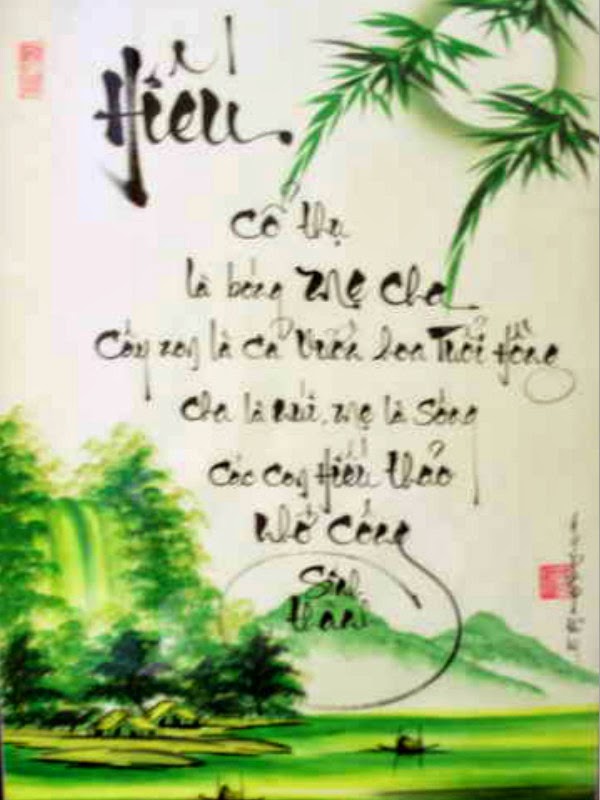 Hiếu
Cổ thụ
là bóng mẹ cha
là cả vườn hoa Tuổi Hồng
cha là núi, mẹ là sông
các con Hiếu thảo
nhớ công
Sinh
thành